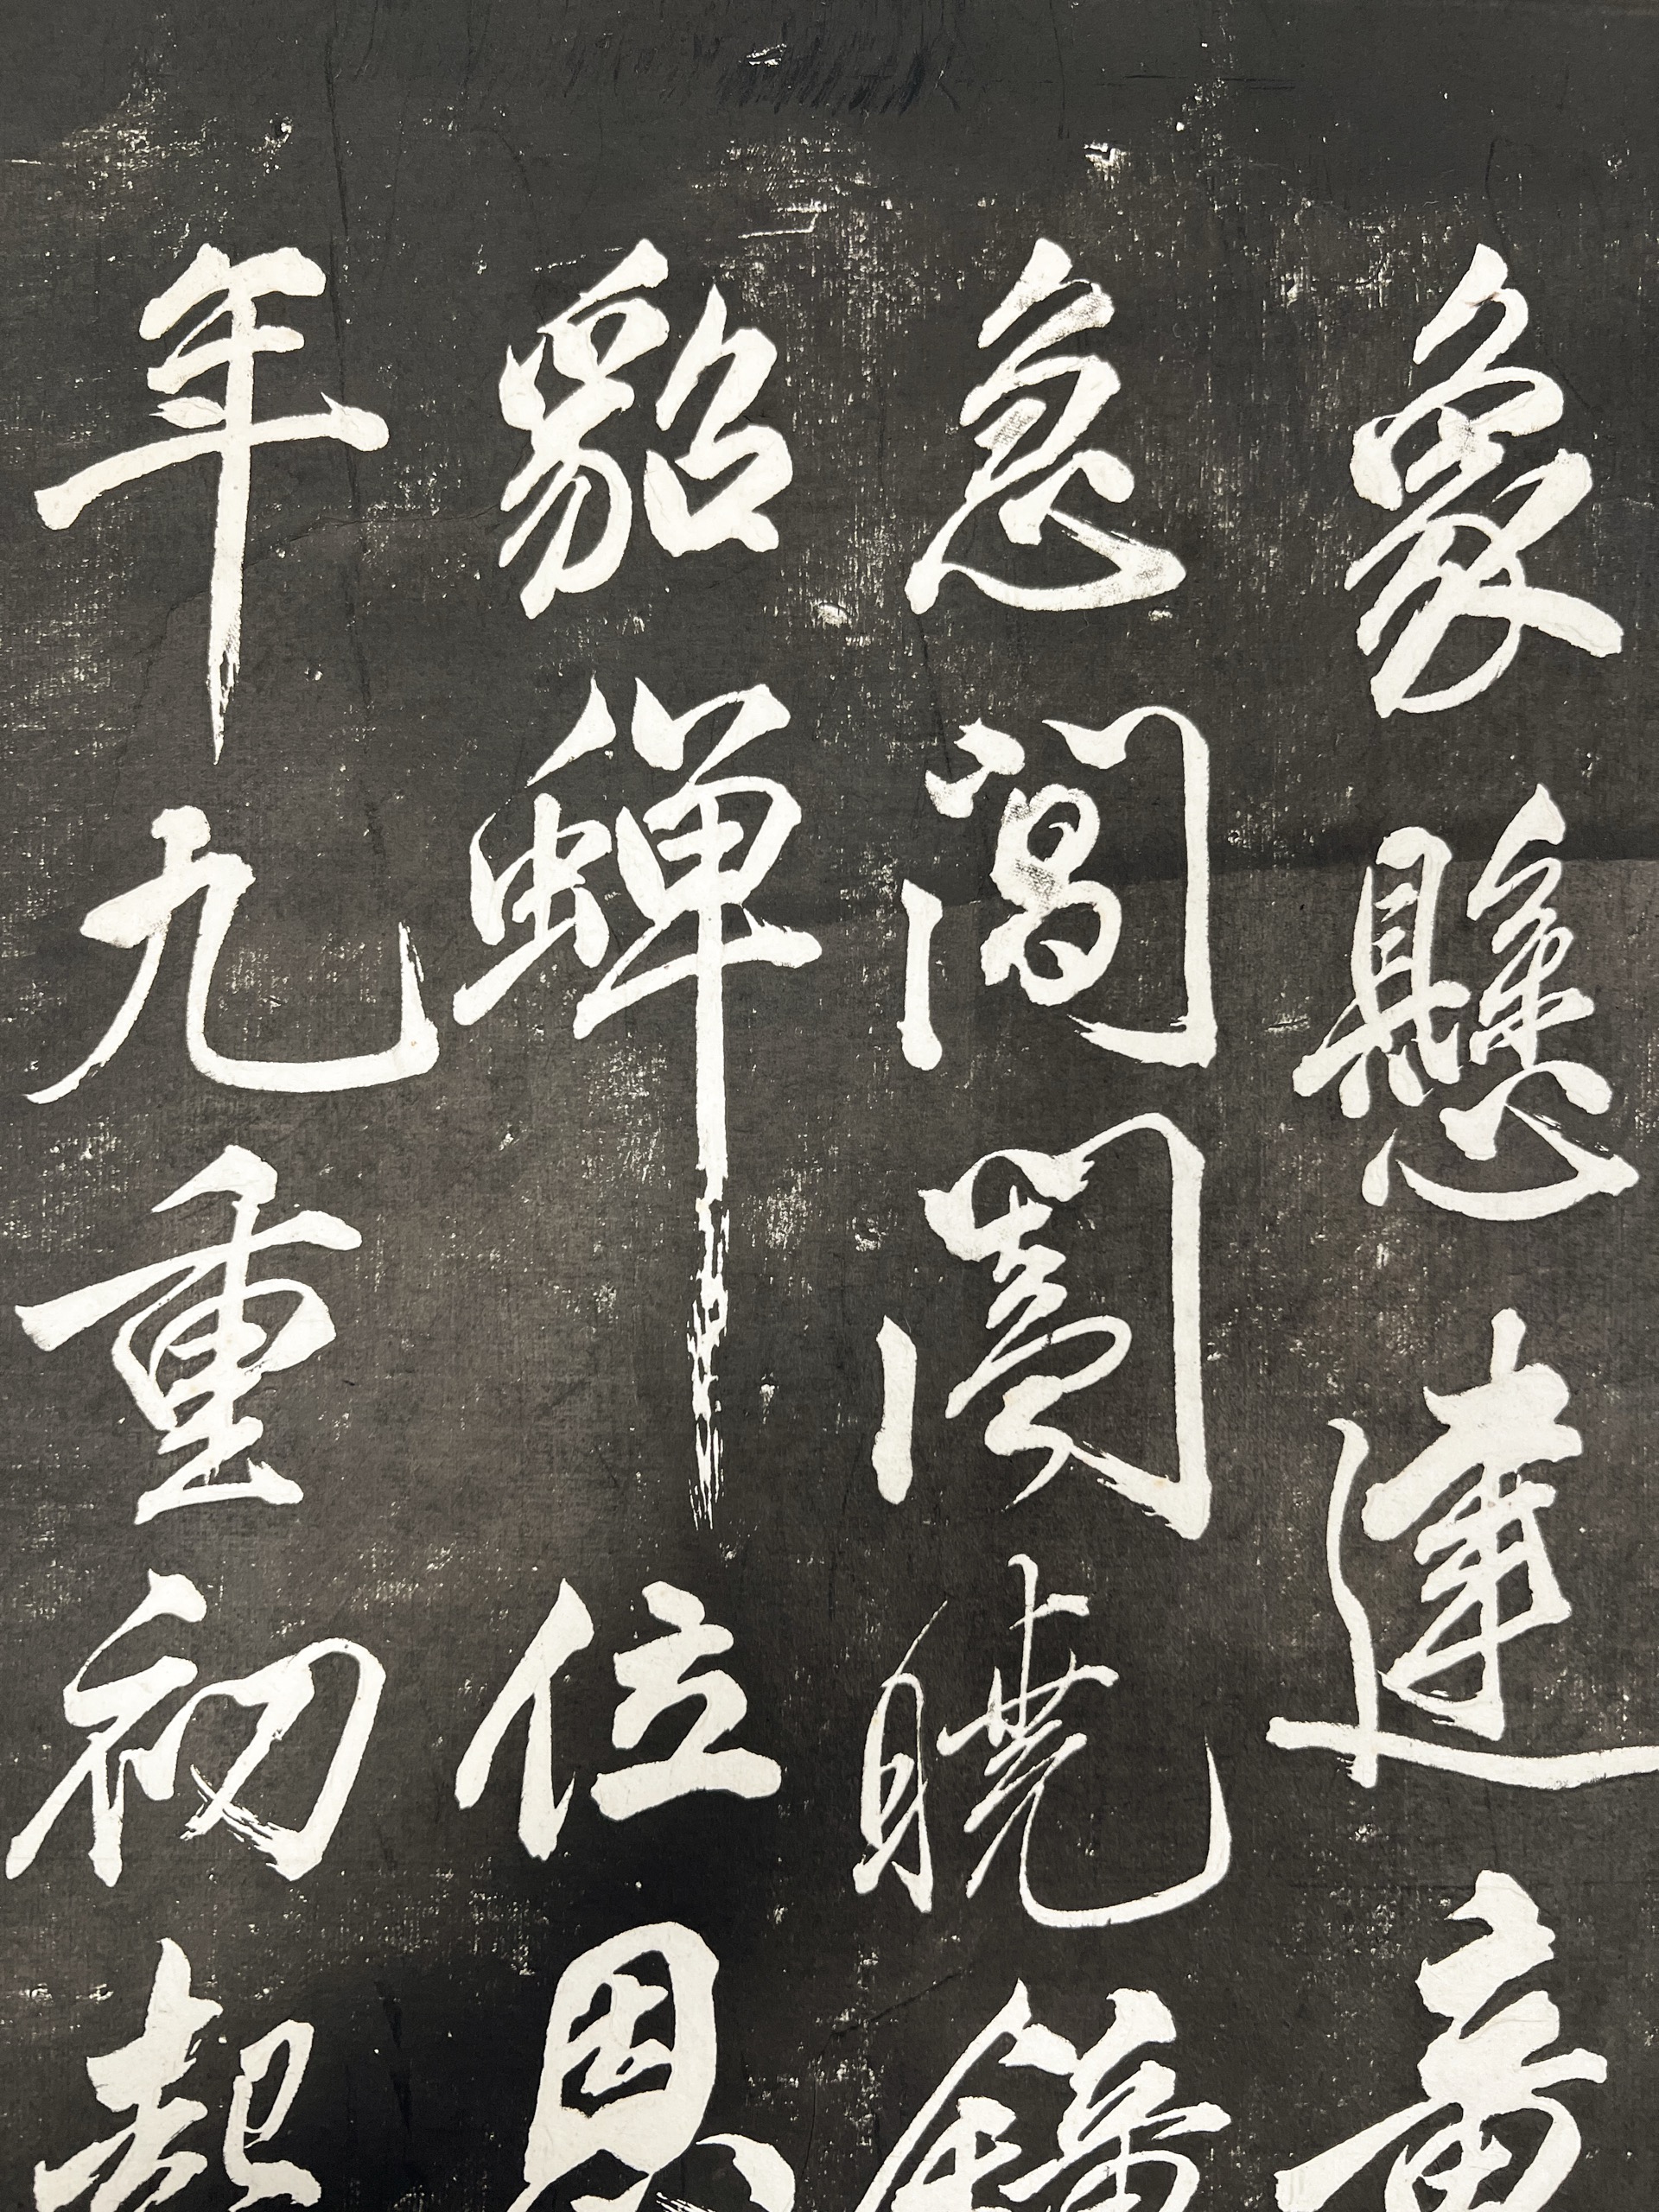 象懸達
急閶闔曉鐘
貂蟬位恩
年九重初起